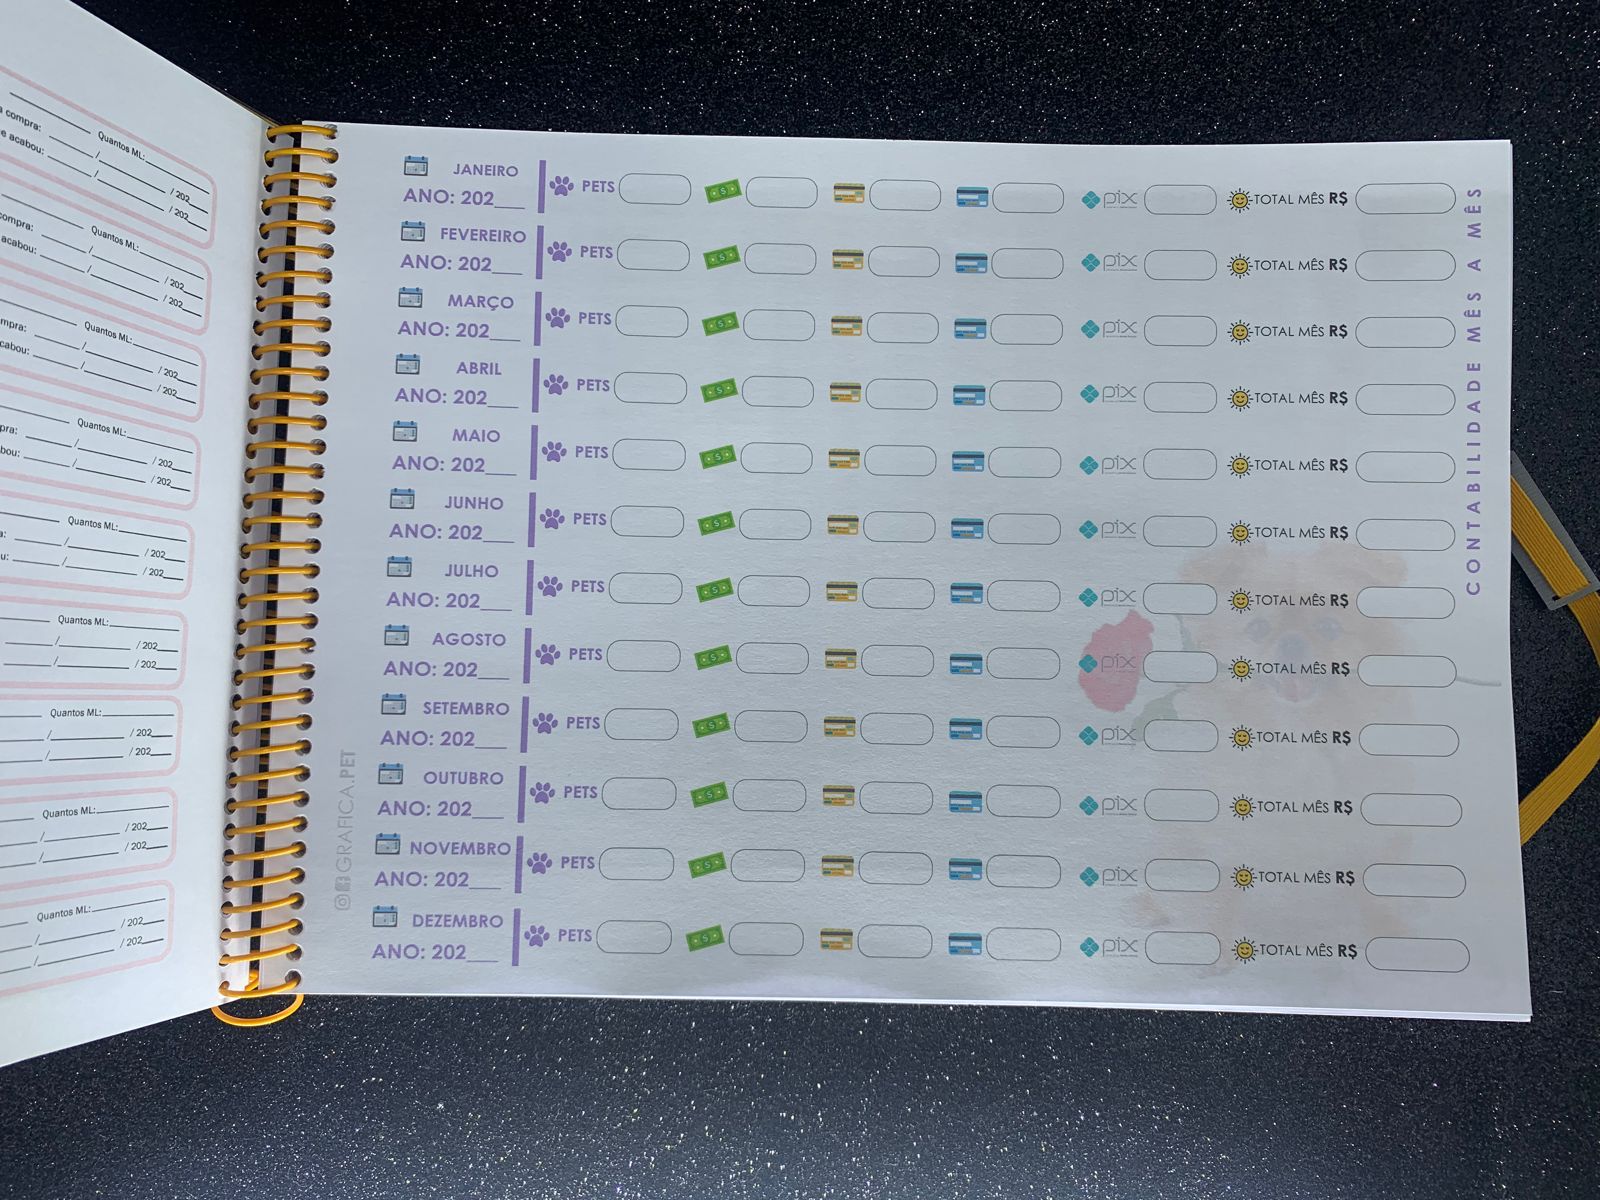 Quantos ML:
a compra: / / 202
e acabou: / / 202
Quantos ML:
compra: / / 202
acabou: / / 202
Quantos ML:
mpra: / / 202
bou: / / 202
Quantos ML:
pra: / / 202
bou: / / 202
Quantos ML:
a: / / 202
u: / / 202
Quantos ML:
/ / 202
/ / 202
Quantos ML:
/ 202
/ 202
Quantos ML:
/ / 202
/ / 202
Quantos ML:
/ / 202
/ / 202
JANEIRO
ANO: 202___ PETS pix TOTAL MÊS R$
FEVEREIRO
ANO: 202___ PETS pix TOTAL MÊS R$
MARÇO
ANO: 202___ PETS pix TOTAL MÊS R$
ABRIL
ANO: 202___ PETS pix TOTAL MÊS R$
MAIO
ANO: 202___ PETS pix TOTAL MÊS R$
JUNHO
ANO: 202___ PETS pix TOTAL MÊS R$
JULHO
ANO: 202___ PETS pix TOTAL MÊS R$
AGOSTO
ANO: 202___ PETS pix TOTAL MÊS R$
SETEMBRO
ANO: 202___ PETS pix TOTAL MÊS R$
OUTUBRO
ANO: 202___ PETS pix TOTAL MÊS R$
NOVEMBRO
ANO: 202___ PETS pix TOTAL MÊS R$
DEZEMBRO
ANO: 202___ PETS pix TOTAL MÊS R$
CONTABILIDADE MÊS A MÊS
GRAFICA.PET